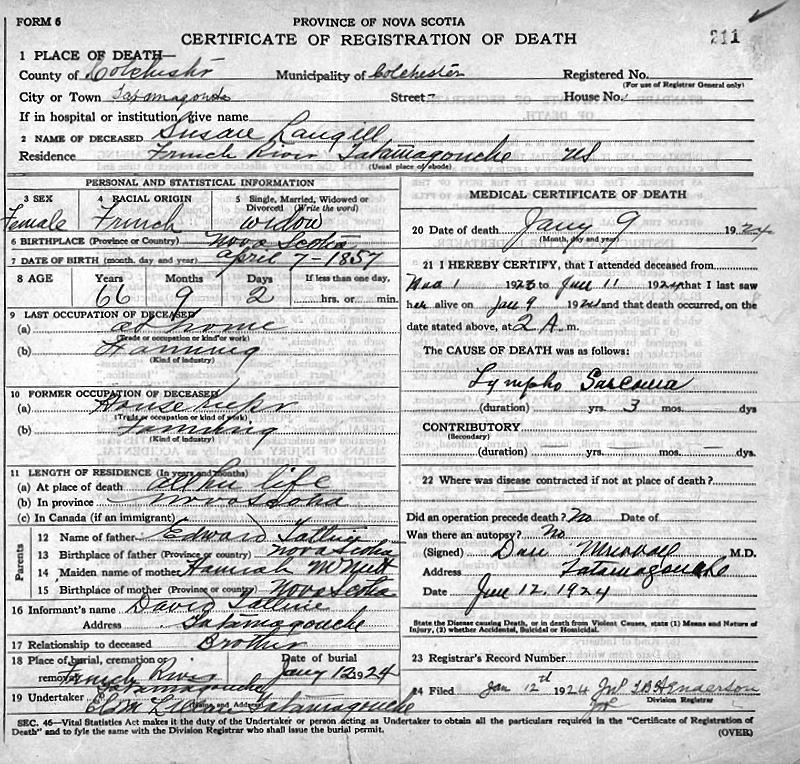 FORM 6
PROVINCE OF NOVA SCOTIA
211
CERTIFICATE OF REGISTRATION OF DEATH
1 PLACE OF DEATH—
County of Colchester Municipality of Colchester Registered No.
(For use of Registrar General only)
City or Town Tatamagouche Street - House No.
If in hospital or institution, give name
2 NAME OF DECEASED Susan Langill
Residence French River Tatamagouche NS
(Usual place of abode)
PERSONAL AND STATISTICAL INFORMATION
3 SEX Female
4 RACIAL ORIGIN French
5 Single, Married, Widowed or Divorced (Write the word) Widow
6 BIRTHPLACE (Province or Country) Nova Scotia
7 DATE OF BIRTH (month, day and year) April 7 - 1857
8 AGE Years Months Days If less than one day,
66 9 2 hrs. or min.
9 LAST OCCUPATION OF DECEASED
(a) at home
(Trade or occupation or kind of work)
(b) Farming
(Kind of industry)
10 FORMER OCCUPATION OF DECEASED
(a) House kepr
(Trade or occupation or kind of work)
(b) Farming
(Kind of industry)
11 LENGTH OF RESIDENCE (In years and months)
(a) At place of death all her life
(b) In province Nova Scotia
(c) In Canada (if an immigrant)
Parents
12 Name of father Edward
13 Birthplace of father (Province or country) Nova Scotia
14 Maiden name of mother Hannah McNutt
15 Birthplace of mother (Province or country) Nova Scotia
16 Informant's name David
Address Tatamagouche
17 Relationship to deceased Brother
18 Place of burial, cremation or removal French River Tatamagouche
Date of burial Jany 12 1924
19 Undertaker Tatamagouche
(Name and Address)
MEDICAL CERTIFICATE OF DEATH
20 Date of death Jany 9 1924
(Month, day and year)
21 I HEREBY CERTIFY, that I attended deceased from
1923 to Jan 11 1924 that I last saw
her alive on Jan 9 1924 and that death occurred, on the
date stated above, at 2 A. m.
The CAUSE OF DEATH was as follows:
Lympho Sarcoma
(duration) yrs. 3 mos. dys
CONTRIBUTORY
(Secondary)
(duration) — yrs. — mos. — dys
22 Where was disease contracted if not at place of death?
Did an operation precede death? No Date of
Was there an autopsy? No
(Signed) Dan M.D.
Address Tatamagouche
Date Jan 12, 1924
State the Disease causing Death, or in death from Violent Causes, state (1) Means and Nature of
Injury, (2) whether Accidental, Suicidal or Homicidal.
23 Registrar's Record Number
24 Filed Jan 12th 1924 Henderson
Division Registrar
SEC. 46—Vital Statistics Act makes it the duty of the Undertaker or person acting as Undertaker to obtain all the particulars required in the "Certificate of Registration of
Death" and to fyle the same with the Division Registrar who shall issue the burial permit.
(OVER)